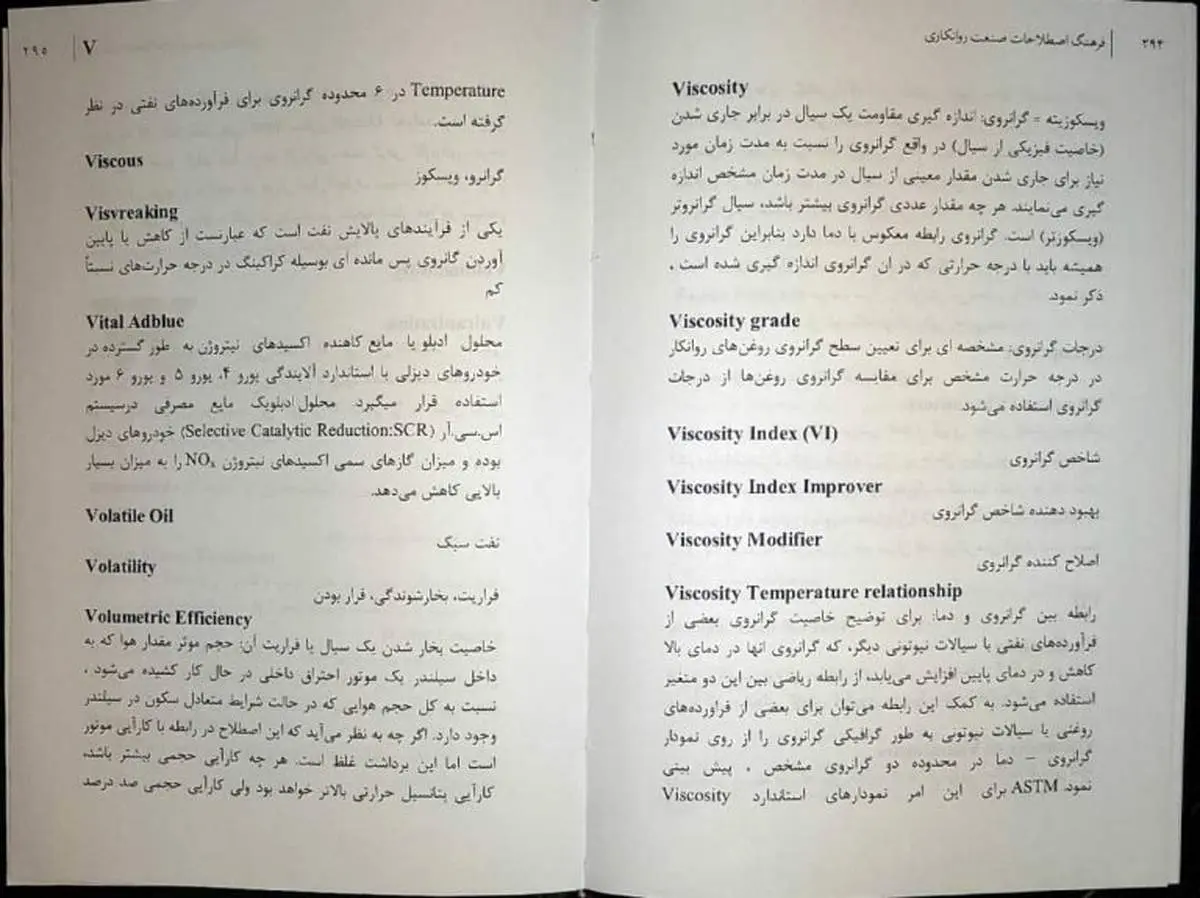 ۲۹۴ | فرهنگ اصطلاحات صنعت روانکاری
Viscosity
ویسکوزیته = گرانروی: اندازه گیری مقاومت یک سیال در برابر جاری شدن
(خاصیت فیزیکی از سیال) در واقع گرانروی را نسبت به مدت زمان مورد
نیاز برای جاری شدن مقدار معینی از سیال در مدت زمان مشخص اندازه
گیری می‌نمایند. هر چه مقدار عددی گرانروی بیشتر باشد، سیال گرانروتر
(ویسکوزتر) است. گرانروی رابطه معکوس با دما دارد بنابراین گرانروی را
همیشه باید با درجه حرارتی که در ان گرانروی اندازه گیری شده است ،
ذکر نمود.
Viscosity grade
درجات گرانروی: مشخصه ای برای تعیین سطح گرانروی روغن‌های روانکار
در درجه حرارت مشخص برای مقایسه گرانروی روغن‌ها از درجات
گرانروی استفاده می‌شود.
Viscosity Index (VI)
شاخص گرانروی
Viscosity Index Improver
بهبود دهنده شاخص گرانروی
Viscosity Modifier
اصلاح کننده گرانروی
Viscosity Temperature relationship
رابطه بین گرانروی و دما: برای توضیح خاصیت گرانروی بعضی از
فرآورده‌های نفتی با سیالات نیوتونی دیگر، که گرانروی انها در دمای بالا
کاهش و در دمای پایین افزایش می‌یابد، از رابطه ریاضی بین این دو متغیر
استفاده می‌شود. به کمک این رابطه می‌توان برای بعضی از فراورده‌های
روغنی یا سیالات نیوتونی به طور گرافیکی گرانروی را از روی نمودار
گرانروی – دما در محدوده دو گرانروی مشخص ، پیش بینی
نمود. ASTM برای این امر نمودارهای استاندارد Viscosity
V | ۲۹۵
Temperature در ۶ محدوده گرانروی برای فرآورده‌های نفتی در نظر
گرفته است.
Viscous
گرانرو، ویسکوز
Visvreaking
یکی از فرآیندهای پالایش نفت است که عبارتست از کاهش یا پایین
آوردن گانروی پس مانده ای بوسیله کراکینگ در درجه حرارت‌های نسبتاً
کم
Vital Adblue
محلول ادبلو یا مایع کاهنده اکسیدهای نیتروژن به طور گسترده در
خودروهای دیزلی با استاندارد آلایندگی یورو ۴، یورو ۵ و یورو ۶ مورد
استفاده قرار میگیرد. محلول ادبلویک مایع مصرفی درسیستم
اس.سی.آر (Selective Catalytic Reduction:SCR) خودروهای دیزل
بوده و میزان گازهای سمی اکسیدهای نیتروژن NOx را به میزان بسیار
بالایی کاهش می‌دهد.
Volatile Oil
نفت سبک
Volatility
فراریت، بخارشوندگی، فرار بودن
Volumetric Efficiency
خاصیت بخار شدن یک سیال یا فراریت آن: حجم موثر مقدار هوا که به
داخل سیلندر یک موتور احتراق داخلی در حال کار کشیده می‌شود ،
نسبت به کل حجم هوایی که در حالت شرایط متعادل سکون در سیلندر
وجود دارد. اگر چه به نظر می‌آید که این اصطلاح در رابطه با کارآیی موتور
است اما این برداشت غلط است. هر چه کارآیی حجمی بیشتر باشد،
کارآیی پتانسیل حرارتی بالاتر خواهد بود ولی کارآیی حجمی صد درصد